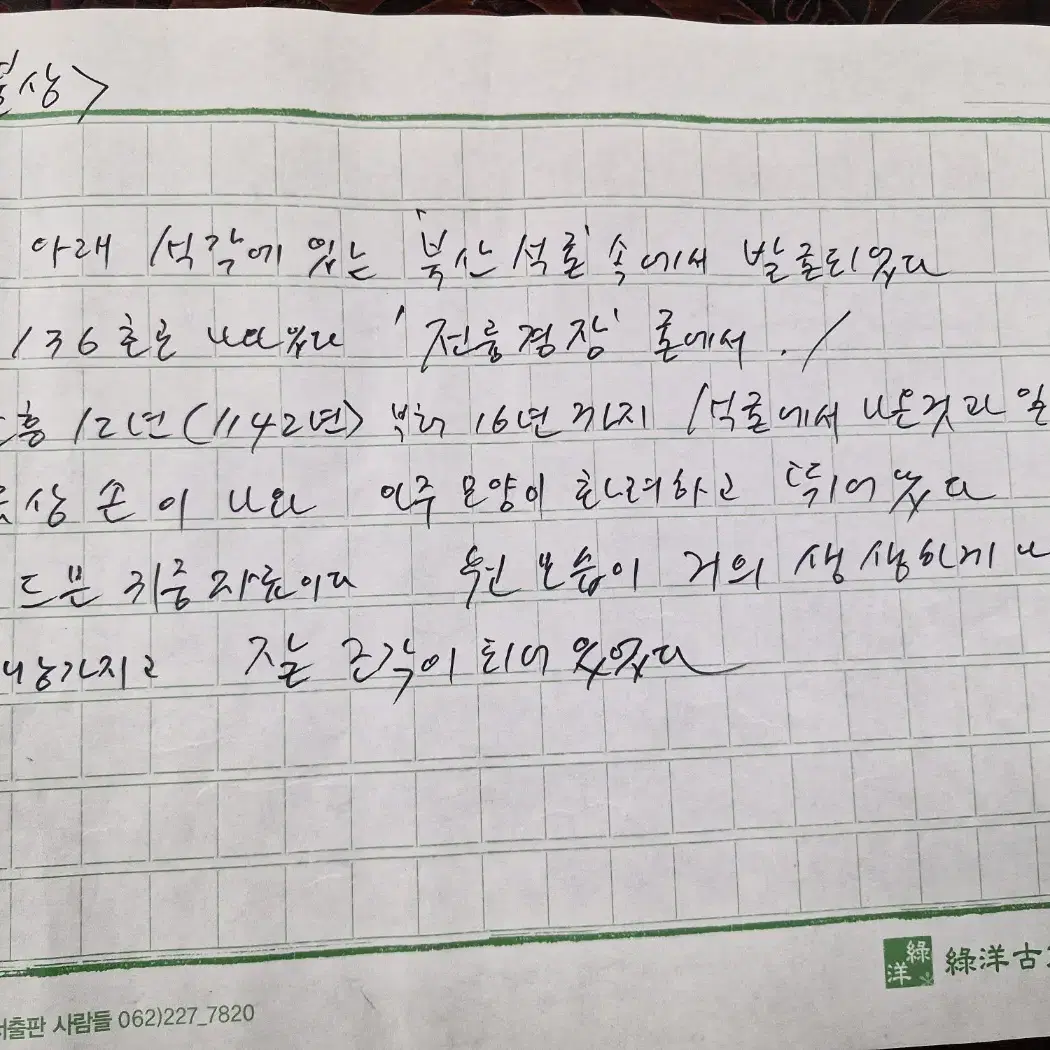 불상>
아래 석각에 있는 '북산석굴' 속에서 발굴되었다
136호로 나와있다 '전륜경장' 굴에서.
흥 12년(1142년) 부터 16년까지 석굴에서 나온것과 일
상 손이 나와 아주 모양이 화려하고 뛰어났다
드문 귀중자료이다 원 모습이 거의 생생하게 나
가지고 잘 조각이 되어 있었다
綠洋
綠洋古
출판 사람들 062)227_7820